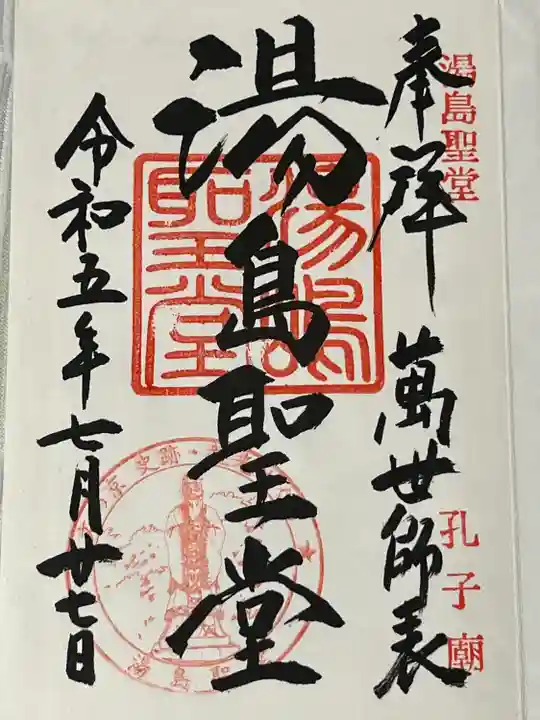 湯島聖堂
孔子廟
奉拝
萬世師表
湯島聖堂
湯島聖堂
令和五年七月廿七日
京 史跡・
湯島聖